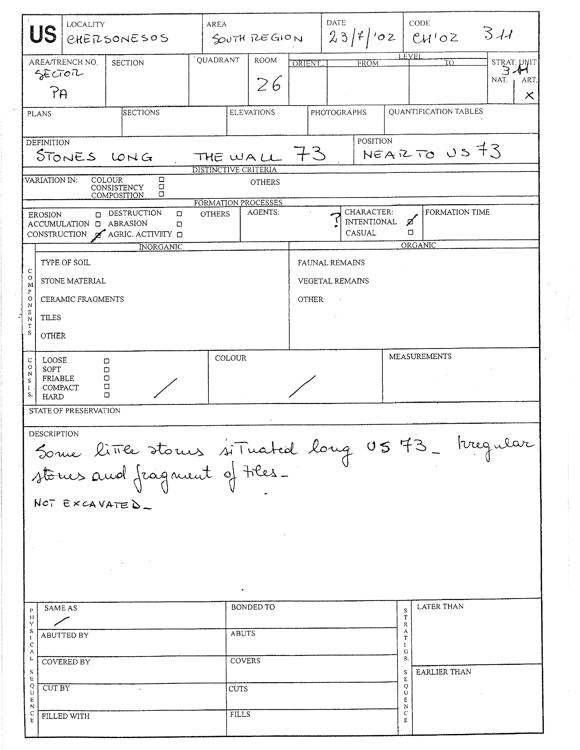 US
LOCALITY
CHERSONESOS
AREA
SOUTH REGION
DATE
23/7/'02
CODE
CH'02 311
AREA/TRENCH NO.
SECTOR
PA
SECTION
QUADRANT
ROOM
26
LEVEL
ORIENT. FROM TO
STRAT. UNIT
311
NAT. ART.
X
PLANS
SECTIONS
ELEVATIONS
PHOTOGRAPHS
QUANTIFICATION TABLES
DEFINITION
STONES LONG THE WALL 73
POSITION
NEAR TO US 73
DISTINCTIVE CRITERIA
VARIATION IN: COLOUR
CONSISTENCY
COMPOSITION
OTHERS
FORMATION PROCESSES
EROSION DESTRUCTION
ACCUMULATION ABRASION
CONSTRUCTION AGRIC. ACTIVITY
OTHERS
AGENTS:
?
CHARACTER:
INTENTIONAL
CASUAL
FORMATION TIME
COMPONENTS
INORGANIC
TYPE OF SOIL
STONE MATERIAL
CERAMIC FRAGMENTS
TILES
OTHER
ORGANIC
FAUNAL REMAINS
VEGETAL REMAINS
OTHER
CONSIS.
LOOSE
SOFT
FRIABLE
COMPACT
HARD
/
COLOUR
/
MEASUREMENTS
STATE OF PRESERVATION
DESCRIPTION
Some little stones situated long US 73_ Irregular
stones and fragment of tiles_
NOT EXCAVATED_
PHYSICAL SEQUENCE
SAME AS
/
BONDED TO
ABUTTED BY
ABUTS
COVERED BY
COVERS
CUT BY
CUTS
FILLED WITH
FILLS
STRATIGR. SEQUENCE
LATER THAN
EARLIER THAN